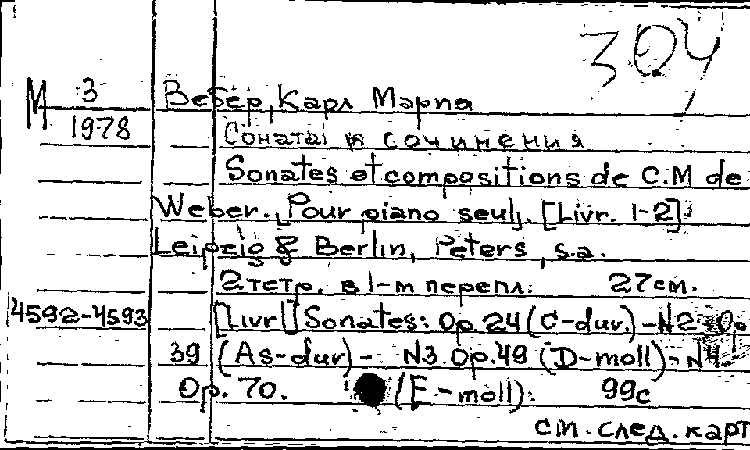 304
М 3 Вебер, Карл Мария
1978 Сонаты и сочинения
Sonates et compositions de C.M de
Weber. [Pour piano seul]. [Livr. 1-2]
Leipzig & Berlin, Peters, s.a.
2тетр. в 1-м перепл. 27см.
4592-4593 [Livr I] Sonates: Op.24 (C-dur.) - N2 Op.
39 (As-dur) - N3 Op.49 (D-moll) - N4.
Op. 70. (E-moll). 99c
см. след. карт